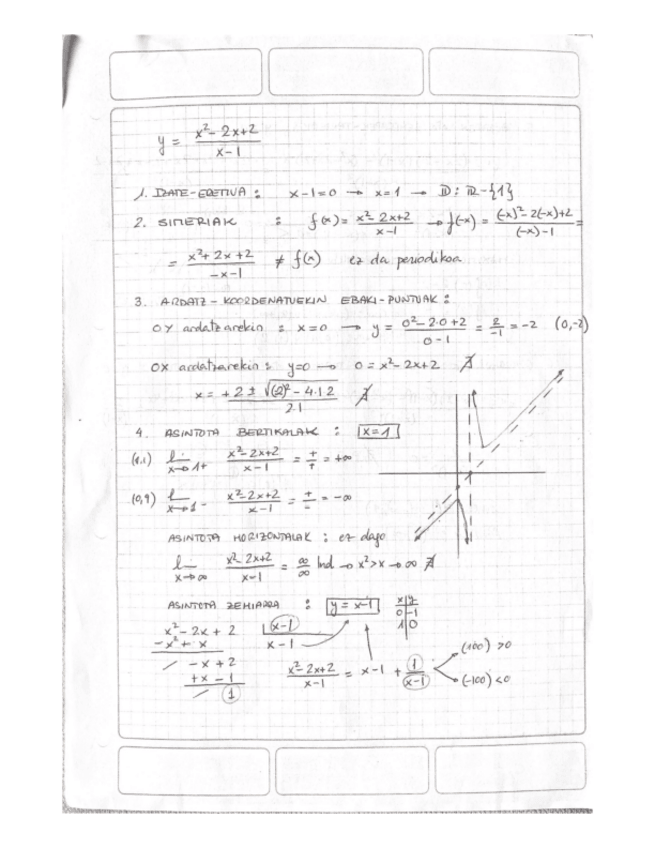 y = x²-2x+2 / x-1
1. IZATE-EREMUA : x-1=0 → x=1 → D: R-{1}
2. SIMERIAK : f(x) = x²-2x+2 / x-1 → f(-x) = (-x)²-2(-x)+2 / (-x)-1 =
= x²+2x+2 / -x-1 ≠ f(x) ez da periodikoa
3. ARDATZ-KOORDENATUEKIN EBAKI-PUNTUAK :
OY ardatzarekin : x=0 → y = 0²-2·0+2 / 0-1 = 2/-1 = -2 (0,-2)
OX ardatzarekin : y=0 → 0 = x²-2x+2 ∄
x = +2 ± √(2)²-4·1·2 / 2·1 ∄
4. ASINTOTA BERTIKALAK : x=1
(1,1) lim x→1+ x²-2x+2 / x-1 = +/+ = +∞
(0,9) lim x→1- x²-2x+2 / x-1 = +/- = -∞
ASINTOTA HORIZONTALAK : ez dago
lim x→∞ x²-2x+2 / x-1 = ∞/∞ Ind → x²>x → ∞ ∄
ASINTOTA ZEHIARRA : y = x-1
x y
0 -1
1 0
x²-2x+2 x-1
-x²+x x-1
-x+2
+x-1
1
x²-2x+2 / x-1 = x-1 + 1 / x-1
(100) >0
(-100) <0